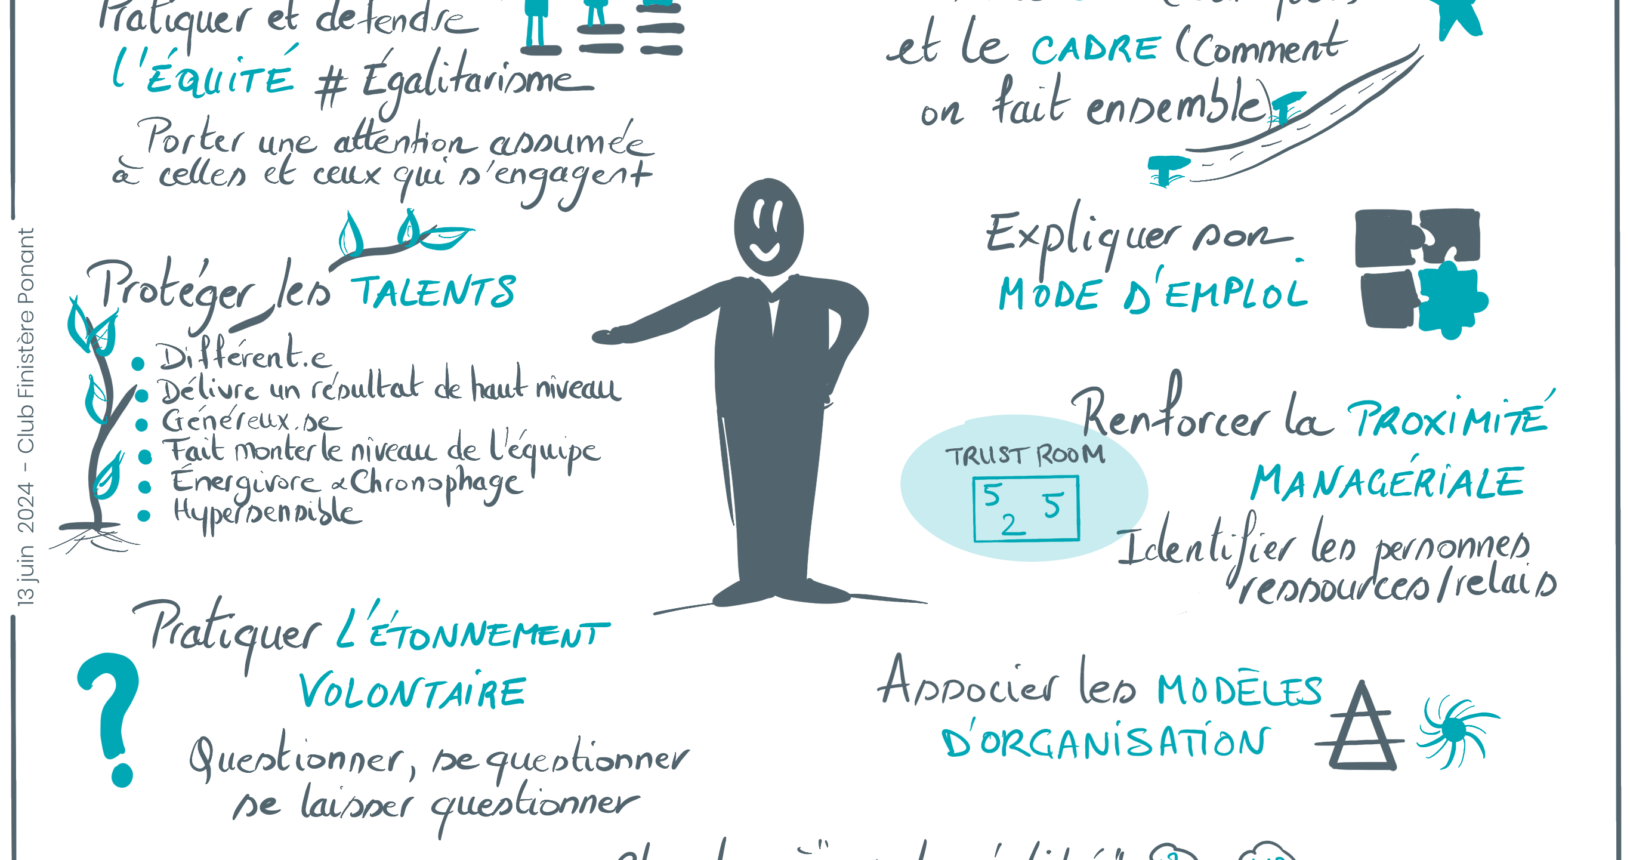 Pratiquer et défendre
l'ÉQUITÉ # Égalitarisme
Porter une attention assumée
à celles et ceux qui s'engagent
Protéger les TALENTS
Différent.e
Délivre un résultat de haut niveau
Généreux.se
Fait monter le niveau de l'équipe
Énergivore & Chronophage
Hypersensible
Pratiquer L'ÉTONNEMENT
VOLONTAIRE
Questionner, se questionner
se laisser questionner
et le CADRE (Comment
on fait ensemble)
Expliquer son
MODE D'EMPLOI
Renforcer la PROXIMITÉ
MANAGÉRIALE
TRUST ROOM
5 5
2
Identifier les personnes
ressources/relais
Associer les MODÈLES
D'ORGANISATION
13 juin 2024 - Club Finistère Ponant